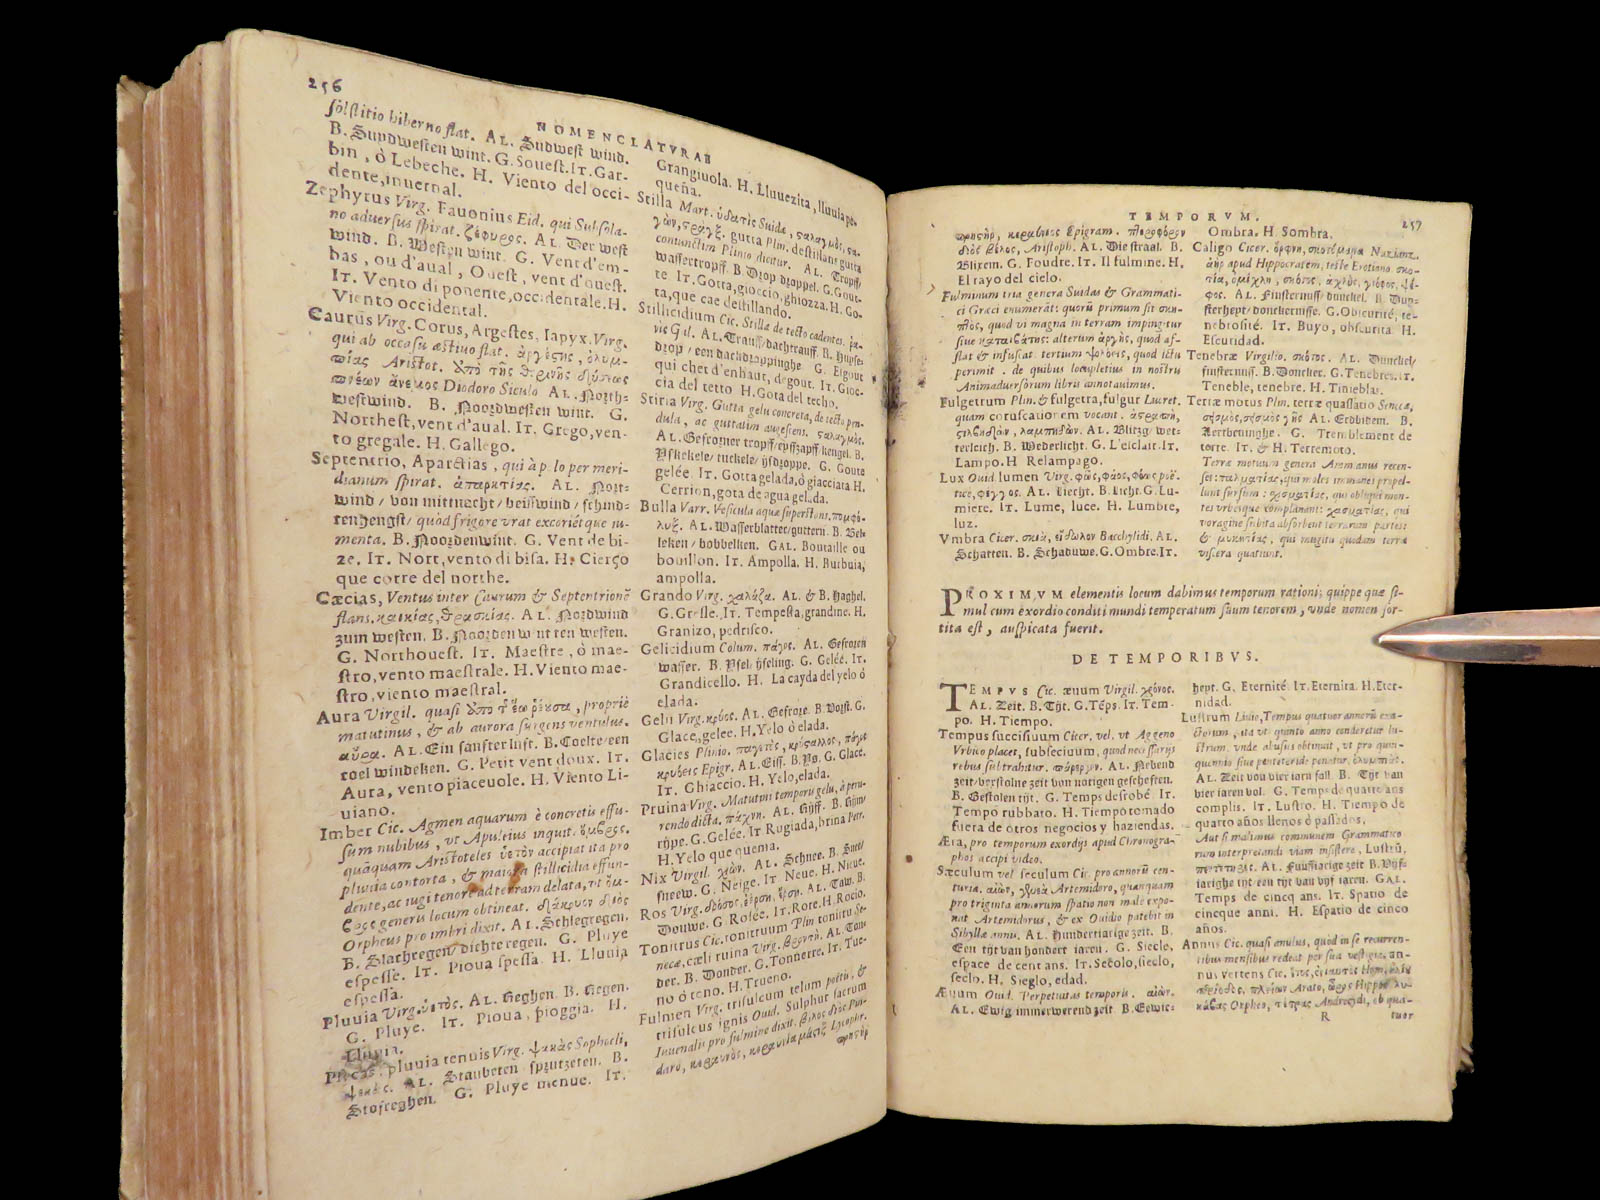 256
NOMENCLATVRAE
sólstitio hiberno flat. AL. Sudwest wind.
B. Sundwesten wint. G. Souest. IT. Gar-
bin, ò Lebeche. H. Viento del occi-
dente, inuernal.
Zephyrus Virg. Fauonius Eid. qui Subsola-
no aduersus spirat. ζέφυρος. AL. Der west
wind. B. Westen wint. G. Vent d'em-
bas, ou d'aual, Ouest, vent d'ouest.
IT. Vento di ponente, occidentale. H.
Viento occidental.
Caurus Virg. Corus, Argestes, Iapyx. Virg.
qui ab occasu æstiuo flat. ἀργέστης, ὀλυμ-
πίας Aristot. ἀπὸ τῆς θερινῆς δύσεως
πνέων ἄνεμος Diodoro Siculo AL. North-
westwind. B. Noordwesten wint. G.
Northest, vent d'aual. IT. Grego, ven-
to gregale. H. Gallego.
Septentrio, Aparctias, qui à polo per meri-
dianum spirat. ἀπαρκτίας. AL. Nort-
wind / von mittnacht / beisswind / schind-
renhengst / quòd frigore vrat excoriétque iu-
menta. B. Noordenwint. G. Vent de bi-
ze. IT. Nort, vento di bisa. H. Cierço
que corre del northe.
Cæcias, Ventus inter Caurum & Septentrionẽ
flans. καικίας, θρασκίας. AL. Nordwind
zum westen. B. Noordenwint ten westen.
G. Northouest. IT. Maestre, ò mae-
stro, vento maestrale. H. Viento mae-
stro, viento maestral.
Aura Virgil. quasi ἀπὸ τ͂ ἕω ῥέουσα, propriè
matutinus, & ab aurora surgens ventulus.
αὔρα. AL. Ein sanfter luft. B. Coelte / een
coel windeken. G. Petit vent doux. IT.
Aura, vento piaceuole. H. Viento Li-
uiano.
Imber Cic. Agmen aquarum è concretis effu-
sum nubibus, vt Apuleius inquit. ὄμβρος.
quãquam Aristoteles ὑετὸν accipiat ita pro
pluuia contorta, & maiora stillicidia effun-
dente, ac iugi tenore ad terram delata, vt ὄμ-
βρος generis locum obtineat. δάκρυον διὸς
Orpheus pro imbri dixit. AL. Schlegregen.
B. Slachregen / dichte regen. G. Pluye
espesse. IT. Pioua spessa. H. Lluuia
espessa.
Pluuia Virg. ὑετὸς. AL. Reghen. B. Regen.
G. Pluye. IT. Pioua, pioggia. H.
Lluuia.
Psecas. pluuia tenuis Virg. ψακὰς Sophocli,
ψεκάς. AL. Staubeten sprutzeten. B.
Stofreghen. G. Pluye menue. IT.
Grangiuola. H. Lluuezita, lluuia pe-
queña.
Stilla Mart. ὑδατὶς Suidæ, σταλαγμὸς, στα-
γὼν, στράγξ. gutta Plin. destillans gutta
coniunctim Plinio dicitur. AL. Tropff /
wassertropff. B. Drop / droppel. G. Gout-
te. IT. Gotta, gioccio, ghiozza. H. Go-
ta, que cae destillando.
Stillicidium Cic. Stillæ de tecto cadentes.
AL. Trauff / dachtrauff. B. Huyse-
drop / een dachdroppinghe. G. Esgout
qui chet d'enhaut, degout. IT. Gioc-
cia del tetto H. Gota del techo.
Stiria Virg. Gutta gelu concreta, de tecto pen-
dula, ac guttatim augescens. σταλαγμός.
AL. Gefrorner tropff / eyszapff / kengel. B.
Yskekele / tuckele / ysdroppe. G. Goute
gelée. IT. Gotta gelada, ò giacciata H.
Cerrion, gota de agua gelada.
Bulla Varr. Vesicula aquæ superstans. πομφό-
λυξ. AL. Wasserblatter / guttern. B. Bel-
leken / bobbelken. GAL. Boutaille ou
bouillon. IT. Ampolla. H. Burbuia,
ampolla.
Grando Virg. χαλάζα. AL. & B. Haghel.
G. Gresle. IT. Tempesta, grandine. H.
Granizo, pedrisco.
Gelicidium Colum. πάγος. AL. Gefroren
wasser. B. Ysel / yseling. G. Gelée. IT.
Grandicello. H. La cayda del yelo ó
elada.
Gelu Virg. κρύος. AL. Gefrore. B. Vorst. G.
Glace, gelee. H. Yelo ò elada.
Glacies Plinio. παγετὸς, κρύσταλλος, πάγος
κρυόεις Epigr. AL. Eiss. B. Ys. G. Glace.
IT. Ghiaccio. H. Yelo, elada.
Pruina Virg. Matutini temporis gelu, à peru-
rendo dicta. πάχνη. AL. Ryff. B. Rijm /
rype. G. Gelée. IT Rugiada, brina Petr.
H. Yelo que quema.
Nix Virgil. χιών. AL. Schnee. B. Snee /
sneew. G. Neige. IT. Neue. H. Nieue.
Ros Virg. δρόσος, ἔρση, ἕρση. AL. Taw. B.
Douwe. G. Rosée. IT. Rote. H. Rocio.
Tonitrus Cic. tonitruum Plin tonitru Se-
necæ, cæli ruina Virg. βροντὴ. AL. Don-
der. B. Donder. G. Tonnerre. IT. Tue-
no ò tono. H. Trueno.
Fulmen Virg. trisulcum telum poëtis, &
trisulcus ignis Ouid. Sulphur sacrum
Iuuenalis pro fulmine dixit. βέλος διὸς Pin-
daro, κεραυνὸς, κεραυνία μάστιξ Lycophr.
πρηστὴρ
TEMPORVM.
257
πρηστὴρ, κεραύνιος Epigram. πυρφόρον
διὸς βέλος, Aristoph. AL. Die straal. B.
Blixem. G. Foudre. IT. Il fulmine. H.
El rayo del cielo.
Fulminum tria genera Suidas & Grammati-
ci Græci enumerãt: quorũ primum sit σκη-
πτὸς, quod vi magna in terram impingitur
siue καταιβάτης: alterum ἀργὴς, quod af-
flat & infuscat. tertium ψολόεις, quod ictu
perimit. de quibus locupletius in nostris
Animaduersorum libris annotauimus.
Fulgetrum Plin. & fulgetra, fulgur Lucret.
quam coruscationem vocant. ἀστραπὴ,
στιλβηδὼν, λαμπηδών. AL. Blitzg / wet-
terleich. B. Wederlicht. G. L'esclair. IT.
Lampo. H Relampago.
Lux Ouid. lumen Virg. φῶς, φάος, φόως poë-
ticè, φέγγος. AL. Liecht. B. Licht. G. Lu-
miere. IT. Lume, luce. H. Lumbre,
luz.
Vmbra Cicer. σκιὰ, εἴδωλον Bacchylidi. AL.
Schatten. B. Schaduwe. G. Ombre. IT.
Ombra. H. Sombra.
Caligo Cicer. ὄρφνη, σκοτόμαινα Nazianz.
ἀὴρ apud Hippocratem, teste Erotiano σκο-
τία, ὀμίχλη, σκότος, ἀχλὺς, γνόφος, ψέ-
φος. AL. Finsternuss / dunckel. B. Duy-
sterheyt / donckernisse. G. Obscurité, te-
nebrosité. IT. Buyo, obscurita. H.
Escuridad.
Tenebræ Virgilio. σκότος. AL. Dunckel /
finsternuss. B. Doncker. G. Tenebres. IT.
Teneble, tenebre. H. Tinieblas.
Terræ motus Plin. terræ quassatio Senecæ,
σεισμὸς, σεισμὸς γῆς AL. Erdbidem. B.
Aertbeuinghe. G. Tremblement de
terre. IT. & H. Terremoto.
Terræ motuum genera Ammianus recen-
set: παλματίας, qui moles immanes propel-
lunt sursum: χασματίας, qui
voragine subita absorbent terrarum partes:
& μυκητίας, qui mugitu quodam terræ
viscera quatiunt.
PROXIMVM elementis locum dabimus temporum rationi; quippe quæ si-
mul cum exordio conditi mundi temperatum suum tenorem, vnde nomen sor-
tita est, auspicata fuerit.
DE TEMPORIBVS.
TEMPVS Cic. æuum Virgil. χρόνος.
AL. Zeit. B. Tijt. G. Tẽps. IT. Tem-
po. H. Tiempo.
Tempus succisiuum Cicer. vel, vt Aggeno
Vrbico placet, subseciuum, quod necessarijs
rebus subtrahitur. πάρεργον. AL. Nebend
zeit / verstolne zeit von notigen gescheften.
B. Gestolen tijt. G. Temps desrobé. IT.
Tempo rubbato. H. Tiempo tomado
fuera de otros negocios y haziendas.
Æra, pro temporum exordijs apud Chronogra-
phos accipi video.
Sæculum vel seculum Cic. pro annorũ cen-
turia. αἰὼν, γενεὰ Artemidoro, quanquam
pro triginta annorum spatio non male expo-
nat Artemidorus, & ex Ouidio patebit in
Sibyllæ annis. AL. Hundertiarige zeit. B.
Een tijt van hondert iaren. G. Siecle,
espace de cent ans. IT. Secolo, sieclo,
seclo. H. Sieglo, edad.
Æuum Ouid. Perpetuitas temporis. αἰών.
AL. Ewig immerwerend zeit. B. Eewic-
heyt. G. Eternité. IT. Eternita. H. Eter-
nidad.
Lustrum Liuio, Tempus quatuor annorũ exa-
ctorum, ita vt quinto anno conderetur lu-
strum. vnde abusus obtinuit, vt pro quin-
quennio siue penteteride ponatur. ὀλυμπιὰς.
AL. Zeit von vier iarn fall. B. Tijt van
vier iaren vol. G. Temps de quatre ans
complis. IT. Lustro. H. Tiempo de
quarto años llenos ò passados.
Aut si malimus communem Grammatico
rum interpretandi viam insistere, Lustrũ,
πενταετία. AL. Funffiarige zeit B. Vijf-
iarighe tijt een tijt van vijf iaren. GAL.
Temps de cincq ans. IT. Spatio de
cincque anni. H. Espatio de cinco
años.
Annus Cic. quasi anulus, quòd in se recurren-
tibus mensibus redeat per sua vestigia, an-
nus vertens Cic. ἔτος, ἐνιαυτὸς Hom.
περίοδος, πλειὼν Arato, ὧρος Hippocr. λυ-
κάβας Orpheo, τέτρας Androcydi, ob qua-
R
tuor